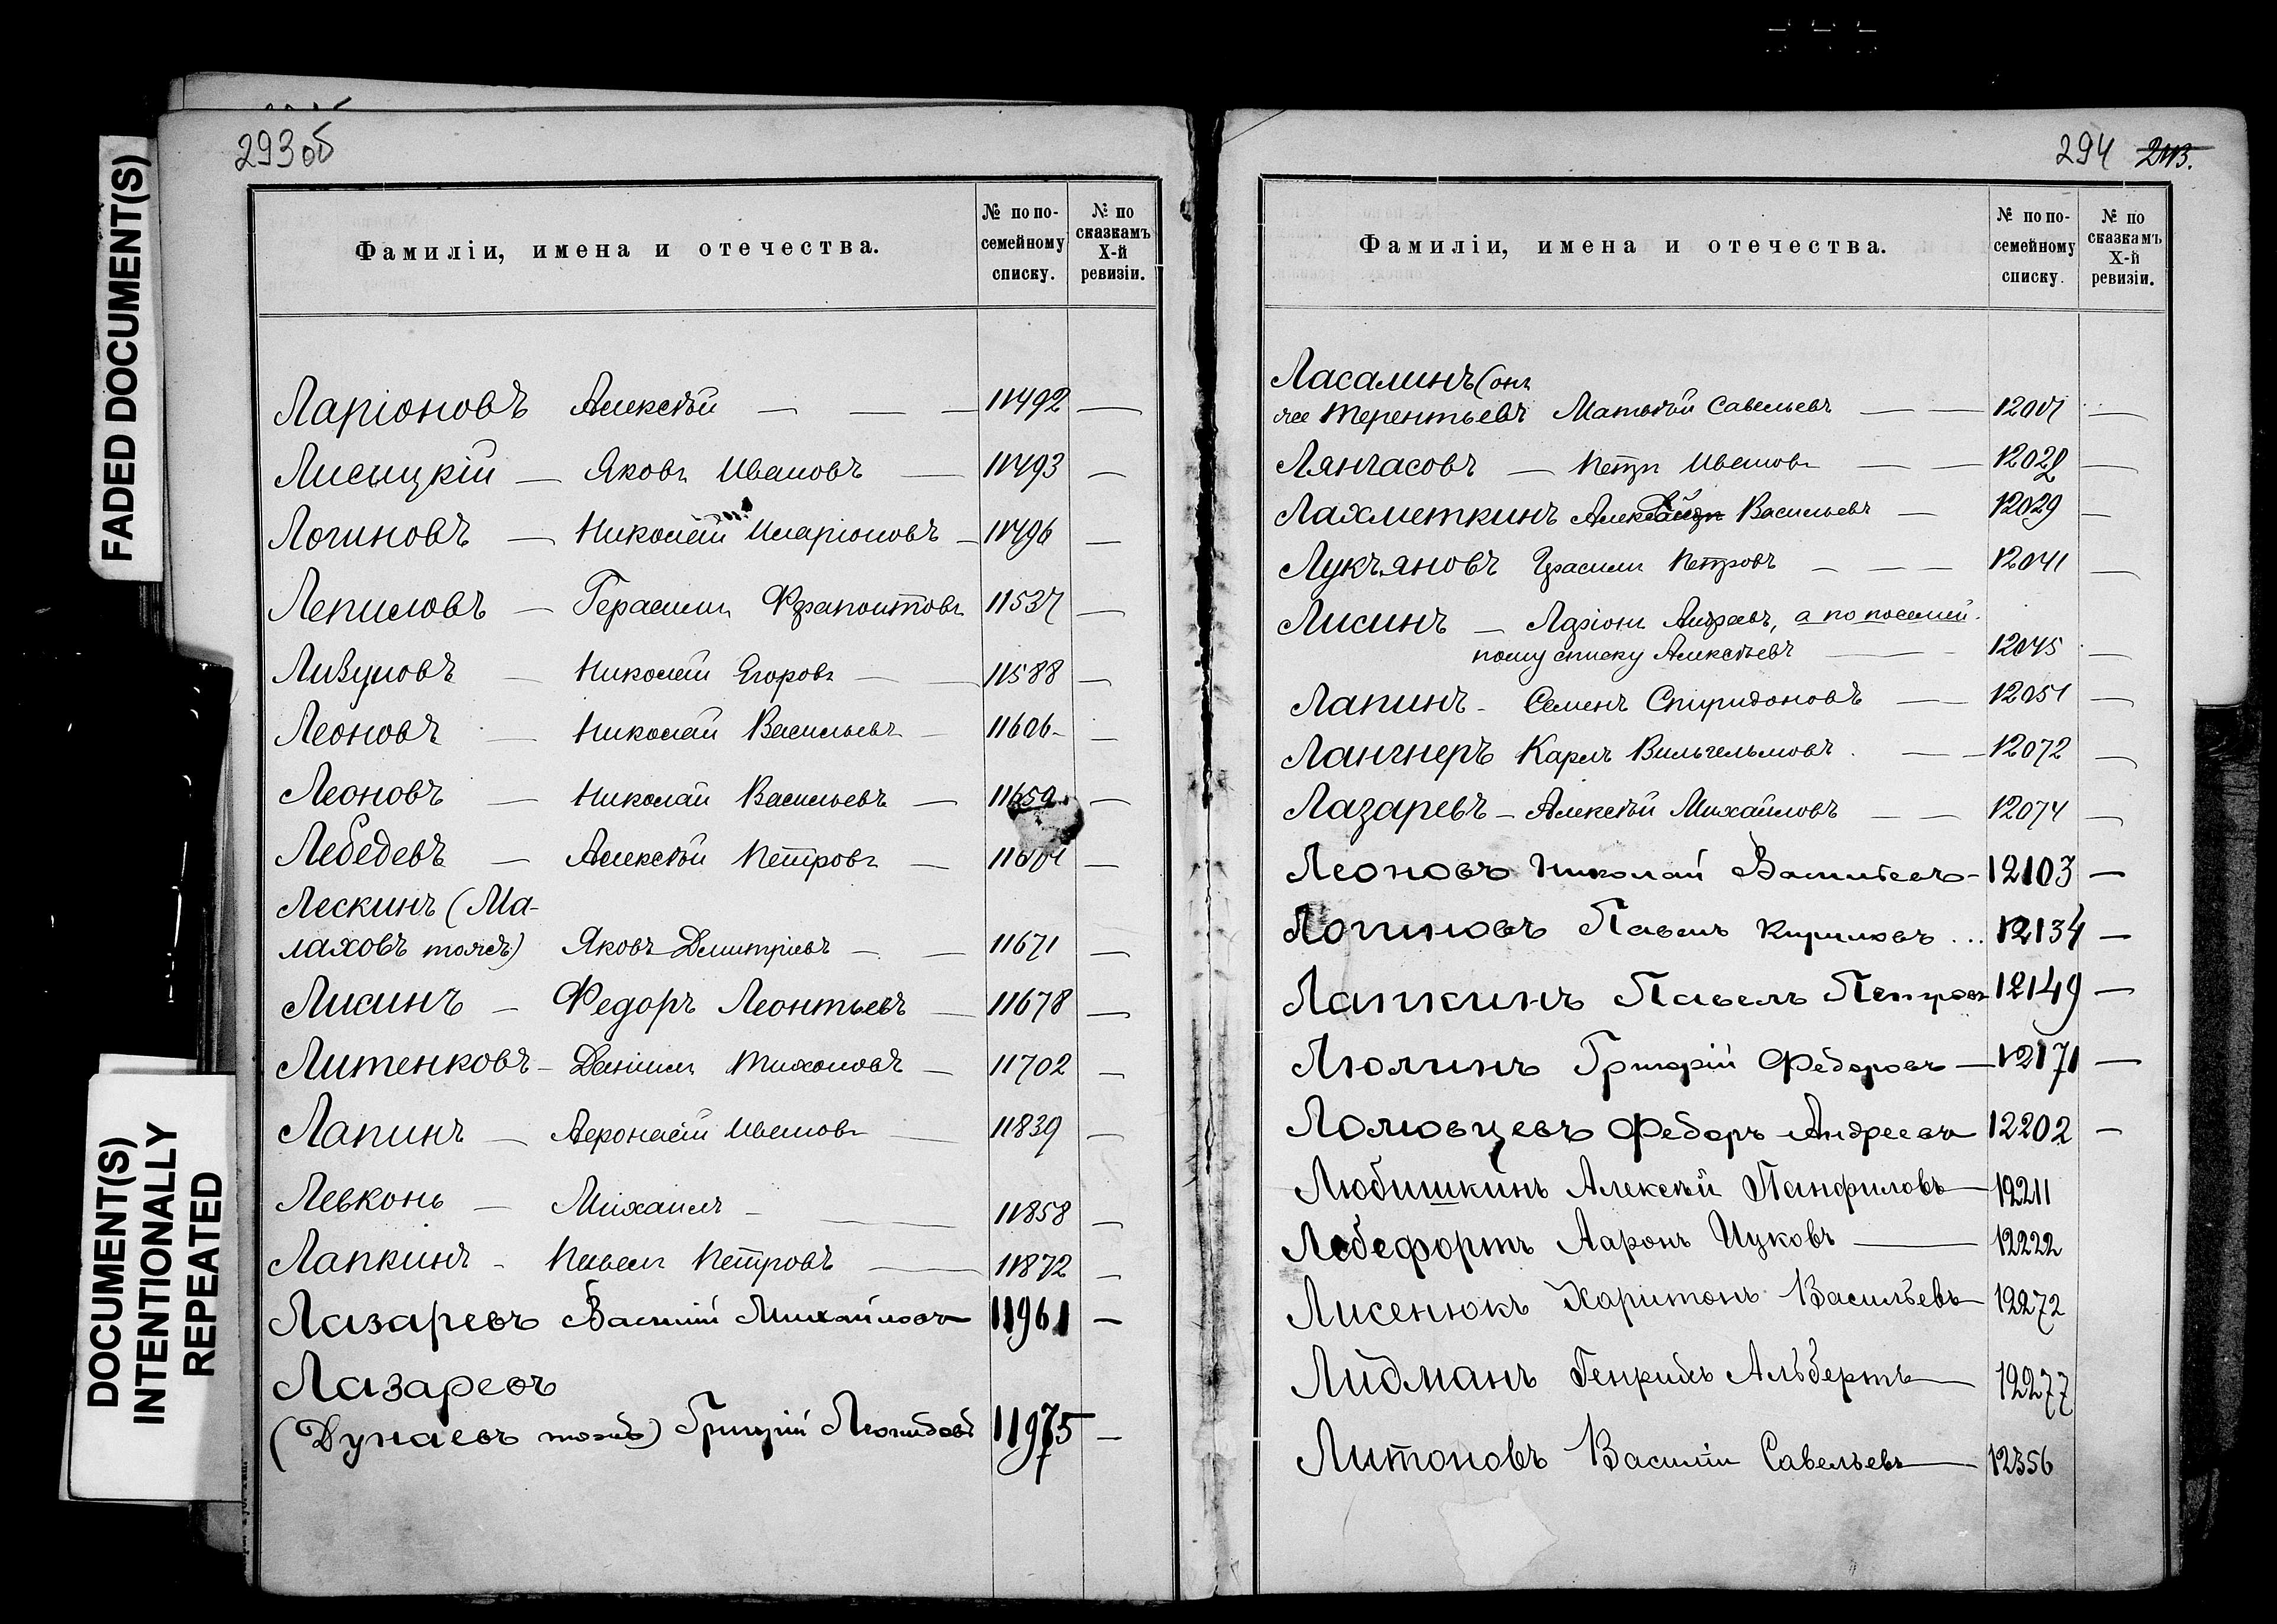 FADED DOCUMENT(S)
DOCUMENT(S)
INTENTIONALLY
REPEATED
293об
Фамиліи, имена и отечества.
№ по по-
семейному
списку.
№ по
сказкамъ
X-й
ревизіи.
Ларіоновъ Алексѣй — — — 11492 —
Лисицкій — Яковъ Ивановъ — 11493 —
Логиновъ — Николай Иларіоновъ — 11496 —
Лепиловъ — Герасимъ Ферапонтовъ 11537 —
Лизуновъ — Николай Егоровъ — — 11588 —
Леоновъ — Николай Васильевъ — 11606 —
Леоновъ — Николай Васильевъ — 11659 —
Лебедевъ — Алексѣй Петровъ — —
Лескинъ (Ма-
лаховъ тожъ) Яковъ Дмитріевъ — — 11671 —
Лисинъ — Федоръ Леонтьевъ — 11678 —
Литенковъ — Даніилъ Тихоновъ — 11702 —
Лапинъ — Афонасій Ивановъ — 11839 —
Левконь — Михаилъ — — 11858 —
Лапкинъ — Павелъ Петровъ — 11872 —
Лазаревъ Василій Михайловъ 11961 —
Лазаревъ
(Дунаевъ тожъ) Григорій Леонидовъ 11975 —
294 243.
Фамиліи, имена и отечества.
№ по по-
семейному
списку.
№ по
сказкамъ
X-й
ревизіи.
Ласалинъ (онъ
же Терентьевъ Матвѣй Савельевъ — — 12007 —
Лянгасовъ — Петръ Ивановъ — — 12022 —
Лахметкинъ Васильевъ — 12029 —
Лукъяновъ Герасимъ Петровъ — — — 12041 —
Лисинъ — Ларіонъ Андреевъ, а по посемей-
ному списку Алексѣевъ — — 12045 —
Лапинъ — Семенъ Спиридоновъ — 12051 —
Лангнеръ Карлъ Вильгельмовъ — — 12072 —
Лазаревъ — Алексѣй Михаиловъ — — 12074 —
Леоновъ Николай Васильевъ — 12103 —
Логиновъ Павелъ Кириловъ ... 12134 —
Лапкинъ Павелъ Петровъ 12149 —
Люлинъ Григорій Федоровъ — 12171 —
Ломовцевъ Федоръ Андреевъ 12202 —
Любишкинъ Алексѣй Панфиловъ — 12211
Лебефортъ Ааронъ Ицковъ — 12222
Лисенюкъ Харитонъ Васильевъ — 12272
Лидманъ Генрихъ Альбертъ — 12277
Литоновъ Василій Савельевъ — 12356